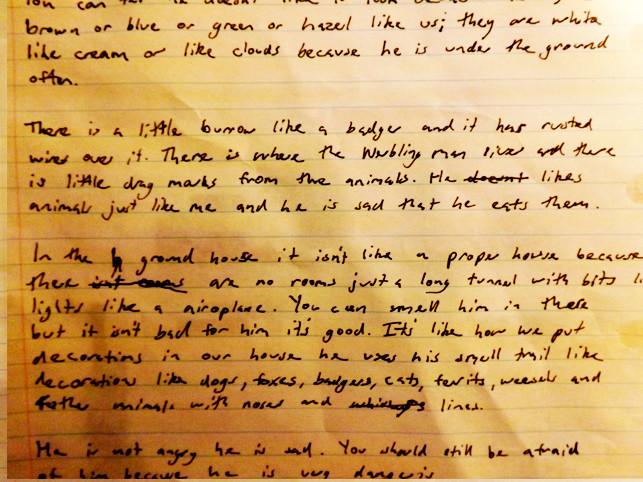 You can tell he doesn't like to look
brown or blue or green or hazel like us; they are white
like cream or like clouds because he is under the ground
often.
There is a little burrow like a badger and it has rusted
wires over it. There is where the Warbling man lives and there
is little drag marks from the animals. He doesnt likes
animals just like me and he is sad that he eats them.
In the h ground house it isn't like a proper house because
there isn't rooms are no rooms just a long tunnel with bits
lights like a airoplane. You can smell him in there
but it isn't bad for him it's good. It's like how we put
decorations in our house he uses his smell trail like
decorations like dogs, foxes, badgers, cats, ferits, weesels and
other animals with noses and whiskers lines.
He is not angry he is sad. You should still be afraid
of him because he is very dangeris